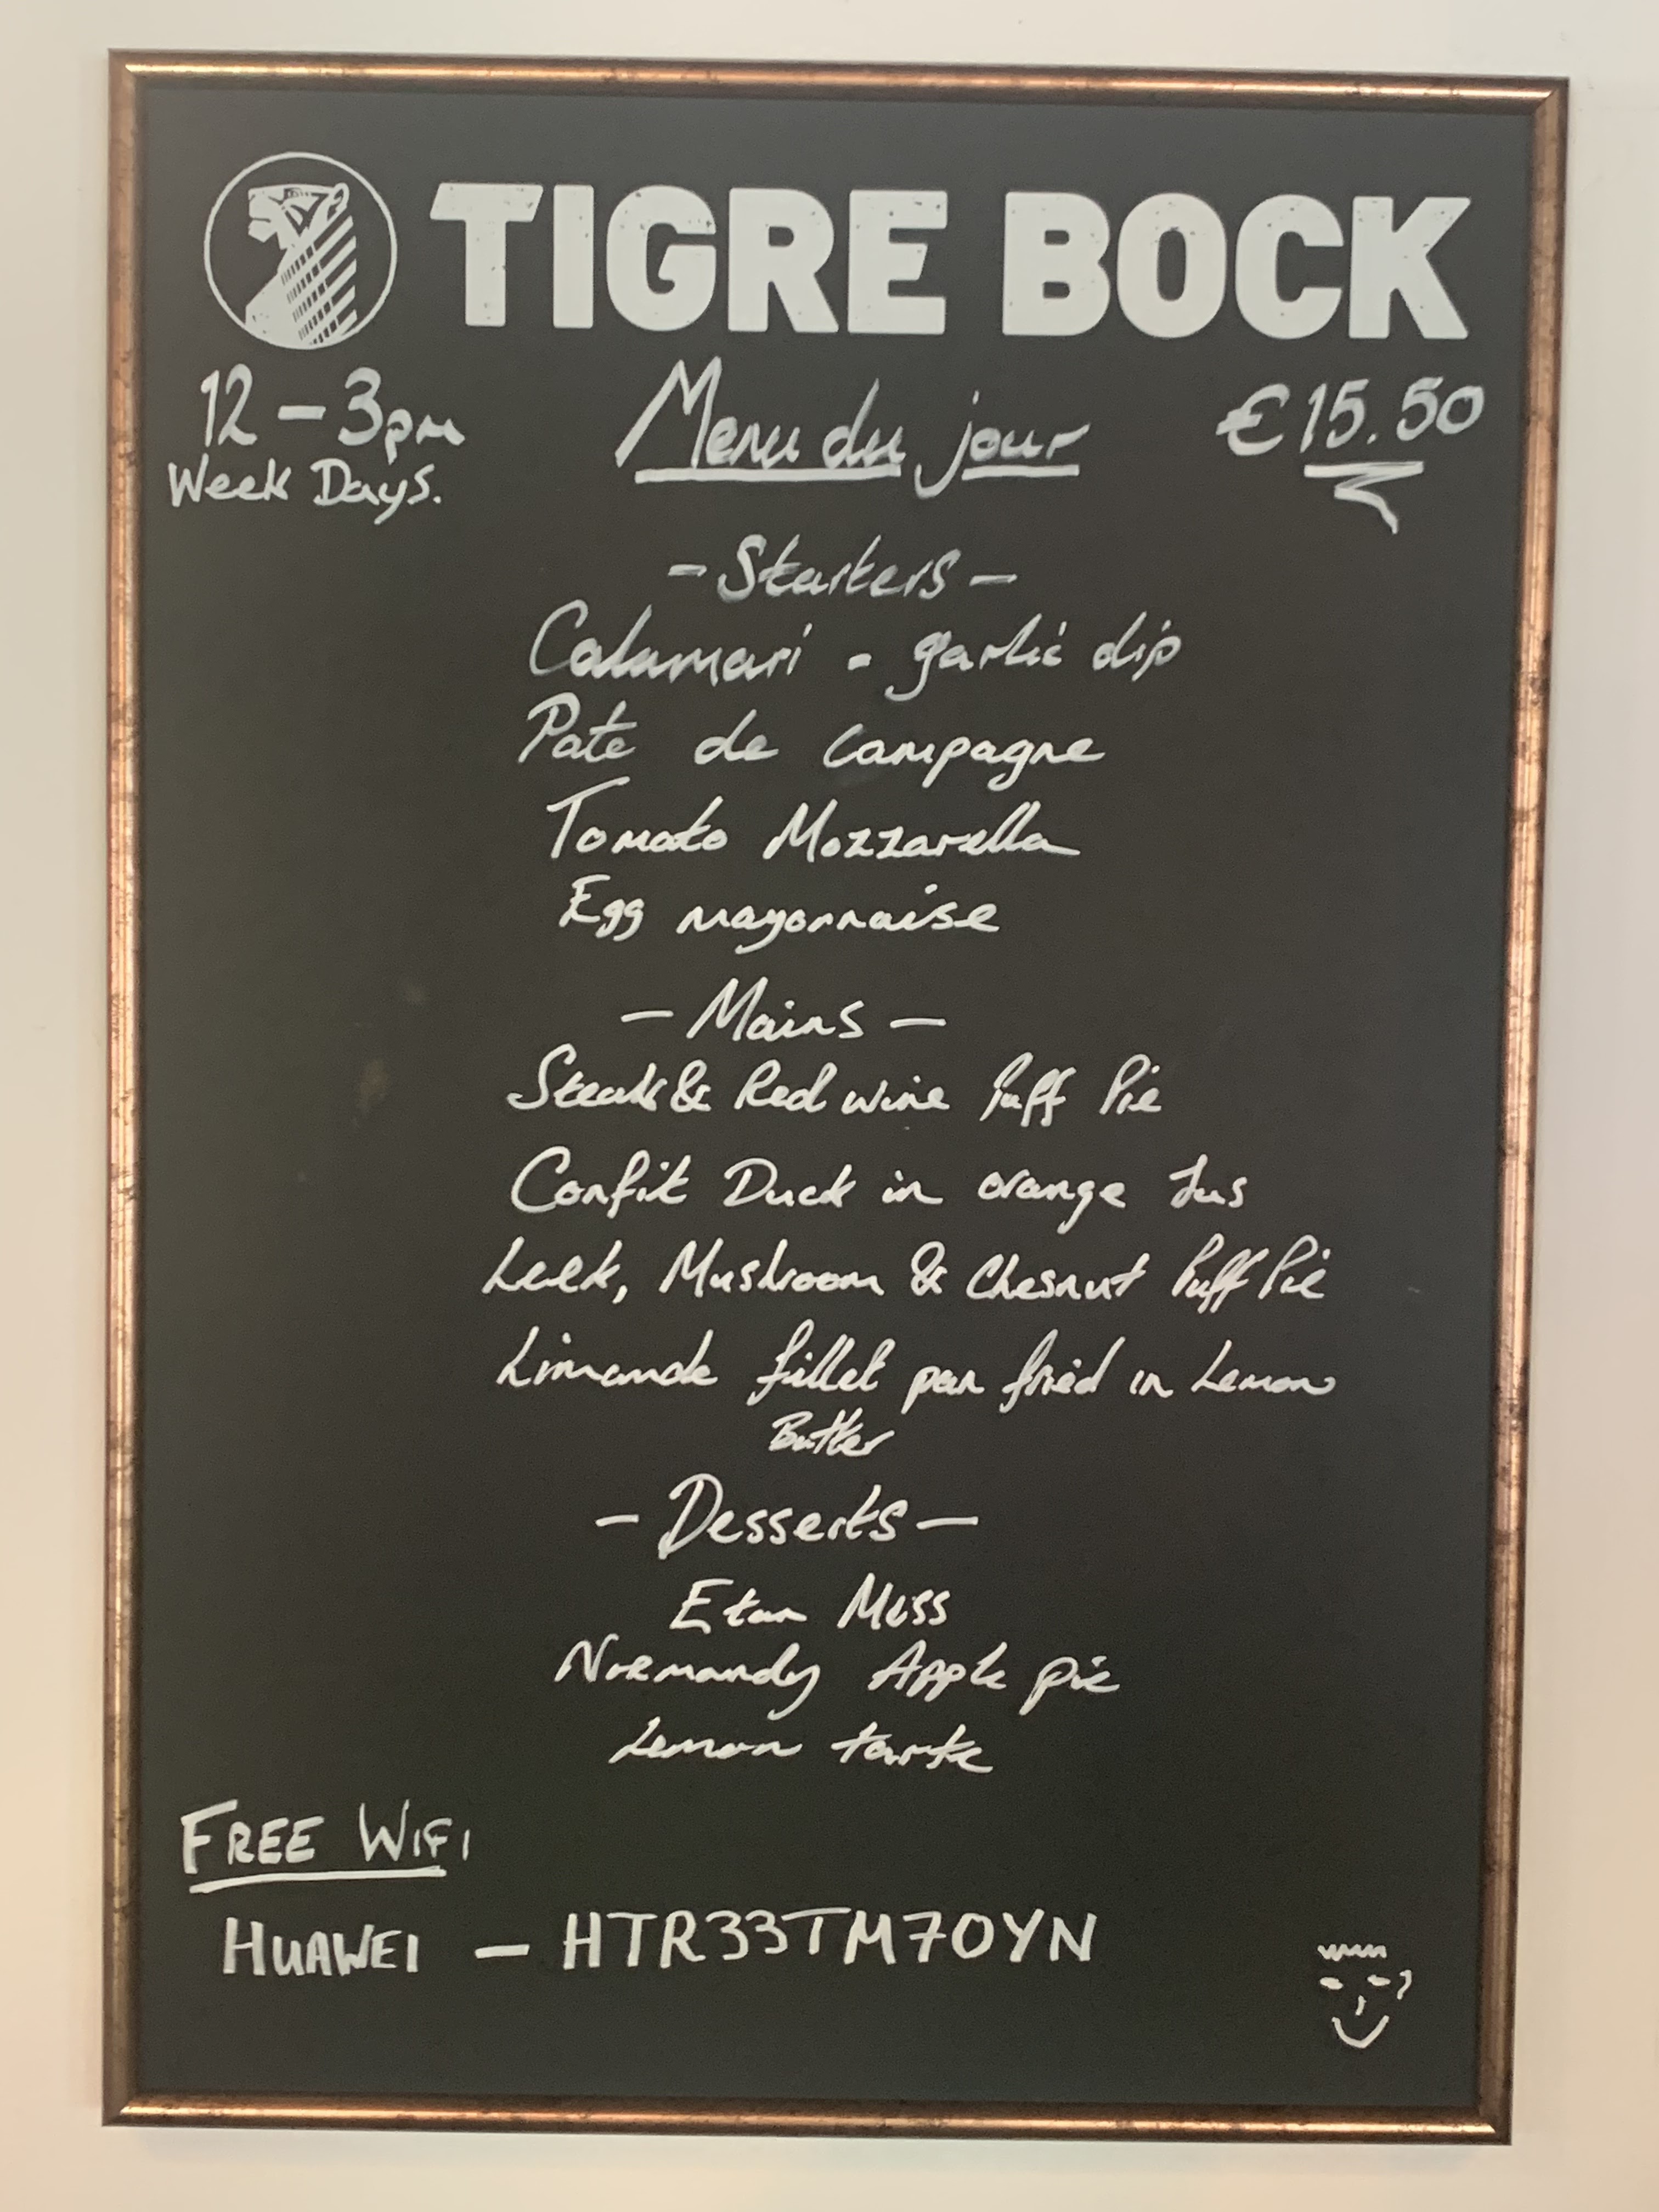 TIGRE BOCK
12 - 3pm Menu du jour €15.50
Week Days.
- Starters -
Calamari - garlic dip
Pate de Campagne
Tomato Mozzarella
Egg mayonnaise
- Mains -
Steak & Red wine Puff Pie
Confit Duck in orange Jus
Leek, Mushroom & Chesnut Puff Pie
Limande fillet pan fried in Lemon
Butter
- Desserts -
Eton Mess
Normandy Apple pie
Lemon tarte
FREE WIFI
HUAWEI - HTR33TM70YN